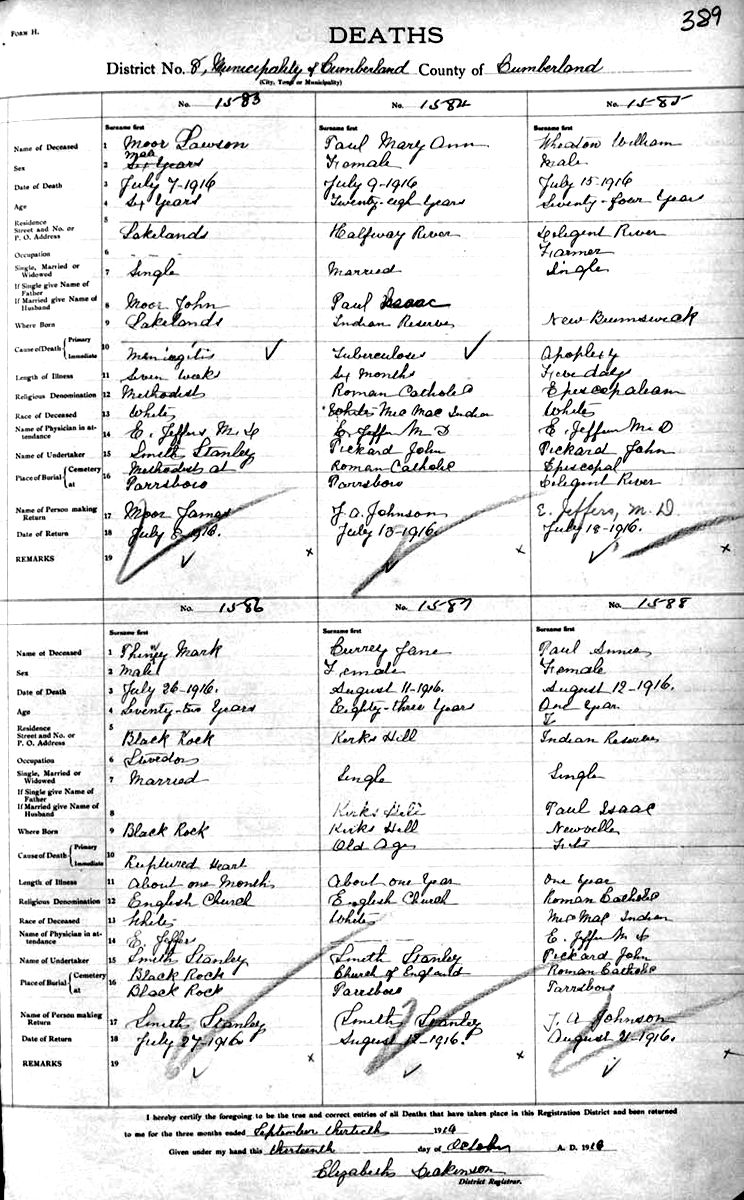 FORM H.
389
DEATHS
District No. 8, Municipality of Cumberland County of Cumberland
(City, Town or Municipality)
No. 1583 No. 1584 No. 1585
Surname first Surname first Surname first
Name of Deceased 1 Moor Lawson Paul Mary Ann Wheaton William
Sex 2 Male Six Years Female Male
Date of Death 3 July 7-1916 July 9-1916 July 15-1916
Age 4 Six Years Twenty-eigh Years Seventy-four Years
Residence 5
Street and No. or
P. O. Address Lakelands Halfway River Deligent River
Occupation 6 Farmer
Single, Married or
Widowed 7 Single Married Single
If Single give Name of
Father
If Married give Name of
Husband 8 Moor John Paul Isaac
Where Born 9 Lakelands Indian Reserve New Brunswick
Cause of Death { Primary 10
Immediate Meningitis ✓ Tuberculoses ✓ Apoplexy
Length of Illness 11 Seven weeks Six months Five days
Religious Denomination 12 Methodist Roman Catholic Episcopaleam
Race of Deceased 13 White White Mic Mac Indian White
Name of Physician in at-
tendance 14 E. Jeffers M. D E. Jeffers M D E. Jeffers M. D
Name of Undertaker 15 Smith Stanley Pickard John Pickard John
Place of Burial { Cemetery 16 Methodist at Roman Catholic Episcopal
at Parrsboro Parrsboro Deligent River
Name of Person making
Return 17 Moor James J. A. Johnson E. Jeffers, M. D.
Date of Return 18 July 8-1916. July 10-1916. July 18-1916.
REMARKS 19 ✓ x ✓ x ✓ x
No. 1586 No. 1587 No. 1588
Surname first Surname first Surname first
Name of Deceased 1 Mark Currey Jane Paul Annie
Sex 2 Male Female Female
Date of Death 3 July 26-1916. August 11-1916. August 12-1916.
Age 4 Seventy-two Years Eighty-three Years One Year
Residence 5
Street and No. or
P. O. Address Black Rock Kirks Hill Indian Reserve
Occupation 6 Stevedor
Single, Married or
Widowed 7 Married Single Single
If Single give Name of
Father
If Married give Name of
Husband 8 Kirks Hill Paul Isaac
Where Born 9 Black Rock Kirks Hill Newville
Cause of Death { Primary 10 Old Age Fits
Immediate Ruptured Heart
Length of Illness 11 About one Month About one Year One Year
Religious Denomination 12 English Church English Church Roman Catholic
Race of Deceased 13 White White Mic Mac Indian
Name of Physician in at-
tendance 14 E. Jeffers E. Jeffers M D
Name of Undertaker 15 Smith Stanley Smith Stanley Pickard John
Place of Burial { Cemetery 16 Black Rock Church of England Roman Catholic
at Black Rock Parrsboro Parrsboro
Name of Person making
Return 17 Smith Stanley Smith Stanley J. A Johnson
Date of Return 18 July 27-1916. August 12-1916. August 21-1916.
REMARKS 19 ✓ x ✓ x ✓ x
I hereby certify the foregoing to be the true and correct entries of all Deaths that have taken place in this Registration District and been returned
to me for the three months ended September thirtieth 1916
Given under my hand this thirteenth day of October A. D. 1916
Elizabeth Deakinson
District Registrar.